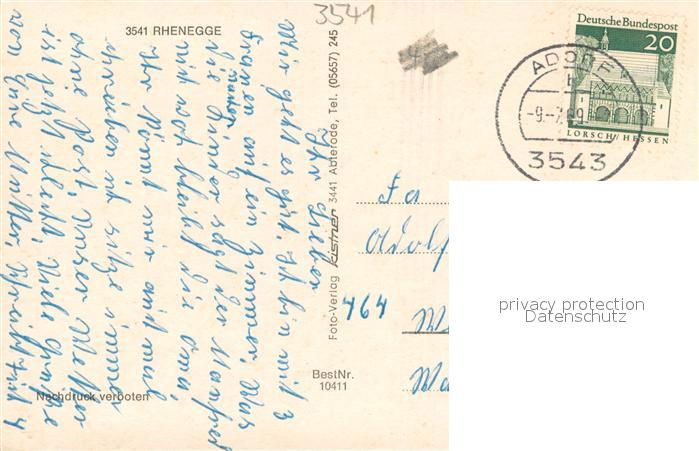 3541
3541 RHENEGGE
Deutsche Bundespost
20
LORSCH/HESSEN
ADORF
-9.-7.69
3543
Ihr Lieben
Mir geht es gut. Ich bin mit 3
Frauen auf ein Zimmer. Was
die Zimmer sagt der Manfred
nicht wo bleibt die Oma,
Ihr könnt mir auch mal
schreiben ich sitze immer
ohne Post. Unser Wetter
ist jetzt schlecht. Viele Grüße
von Eure Mutter, schreibt
Foto-Verlag Kistner 3441 Abterode, Tel. (05657) 245
Fa
Adolf
464
BestNr.
10411
Nachdruck verboten
privacy protection
Datenschutz